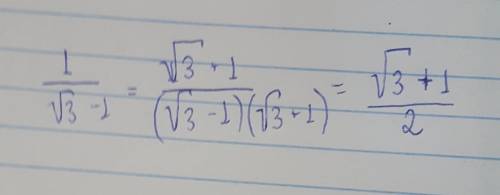 1/(√3 - 1) = (√3 + 1)/((√3 - 1)(√3 + 1)) = (√3 + 1)/2